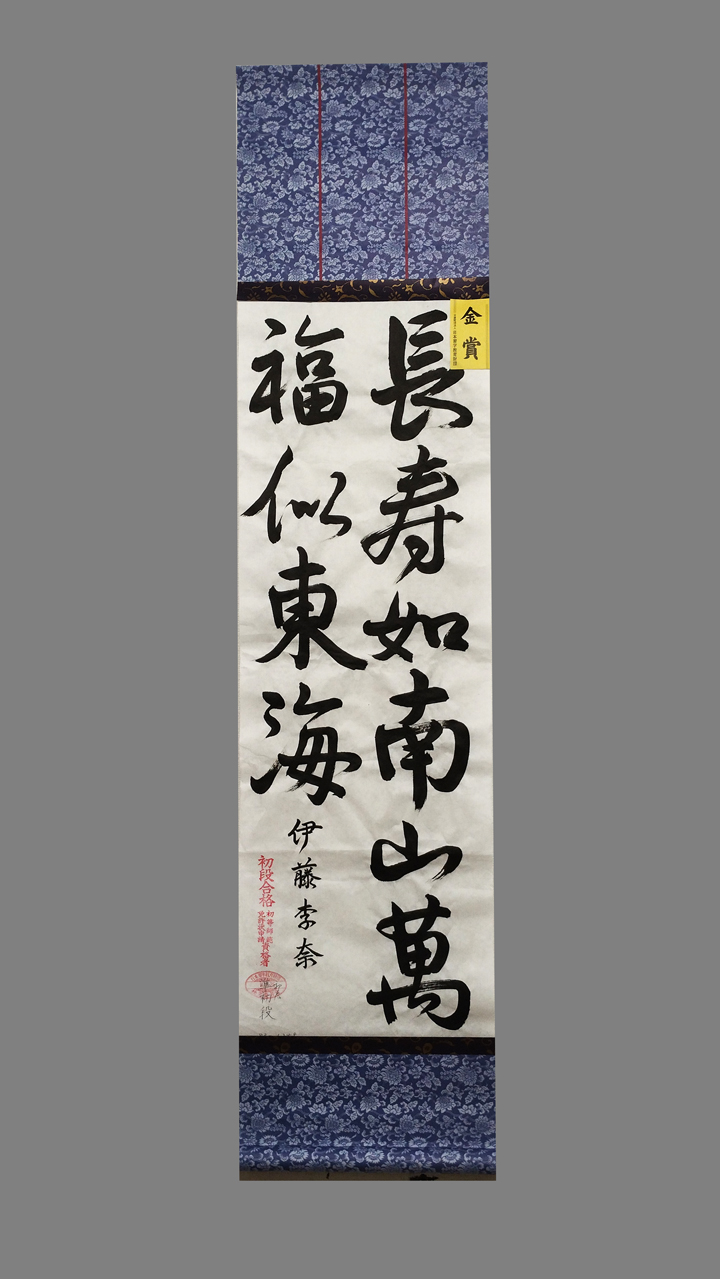 長寿如南山萬
福似東海
伊藤李奈
金賞
初段合格